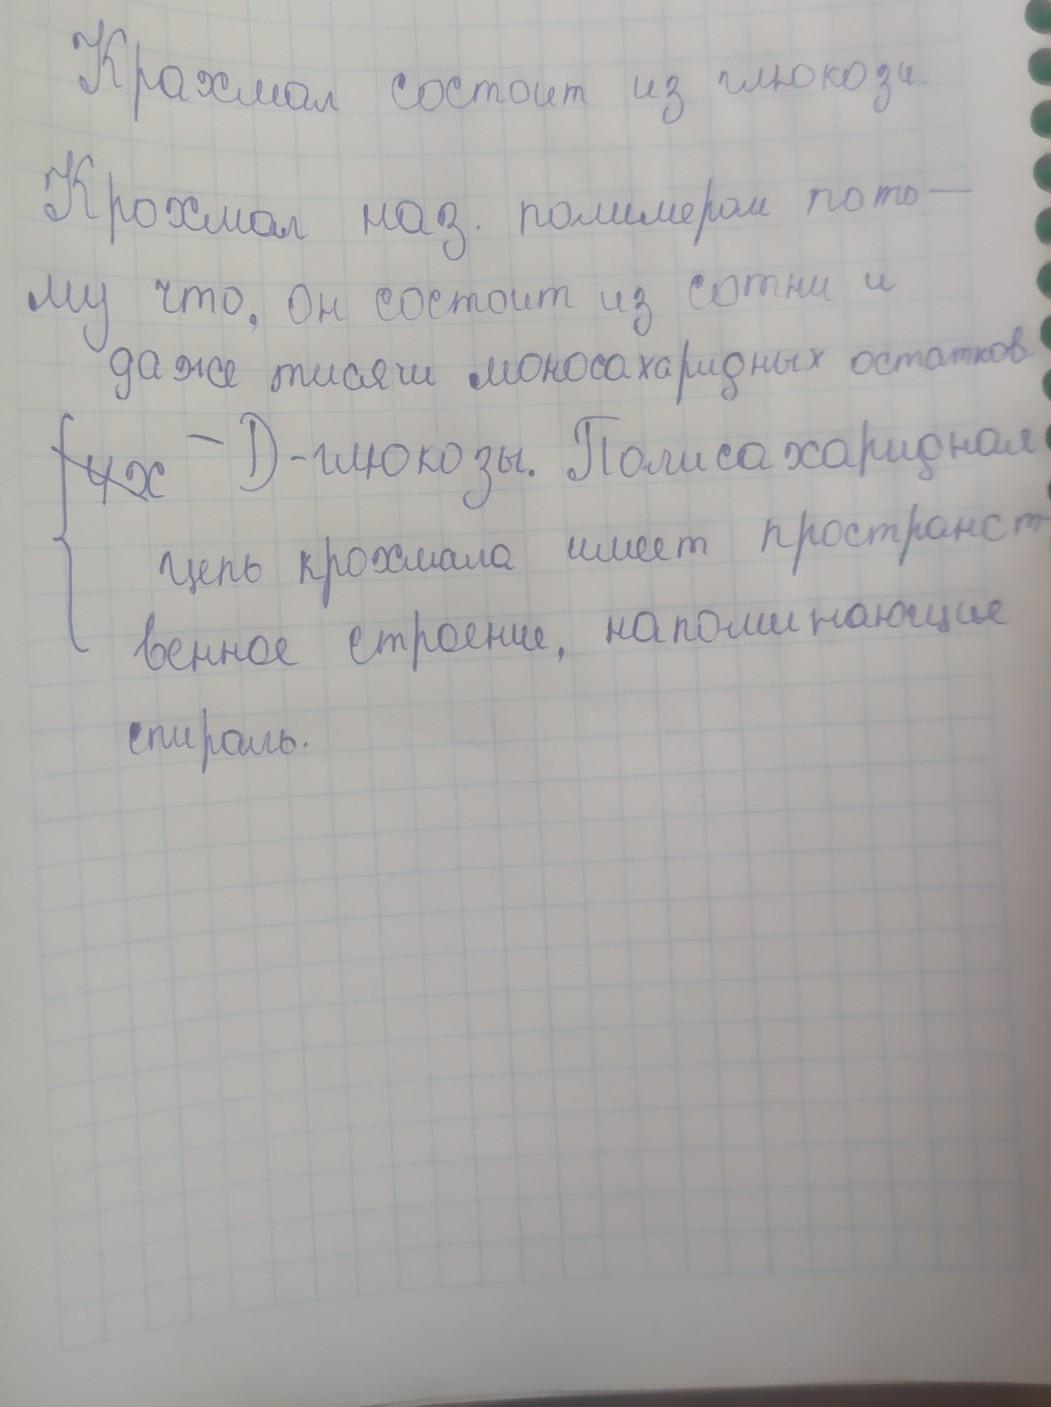 Крахмал состоит из глюкози.
Крохмал наз. полимером пото-
му что, он состоит из сотни и
даже тисячи моносахаридных остатков
- D-глюкозы. Полисахаридная
цепь крохмала имеет пространст
венное строение, напоминающие
спираль.